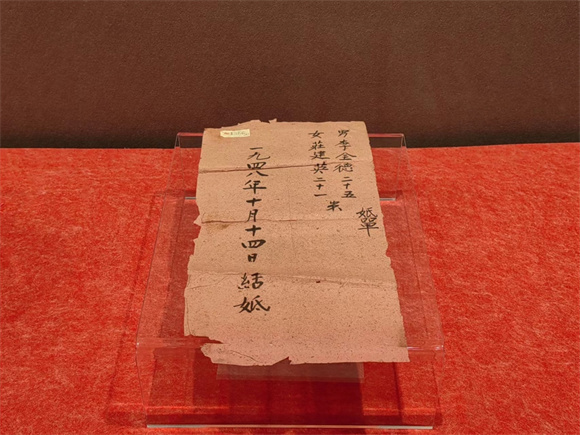 婚單
男李金德二十五
女莊建英二十一
一九四八年十月十四日結婚